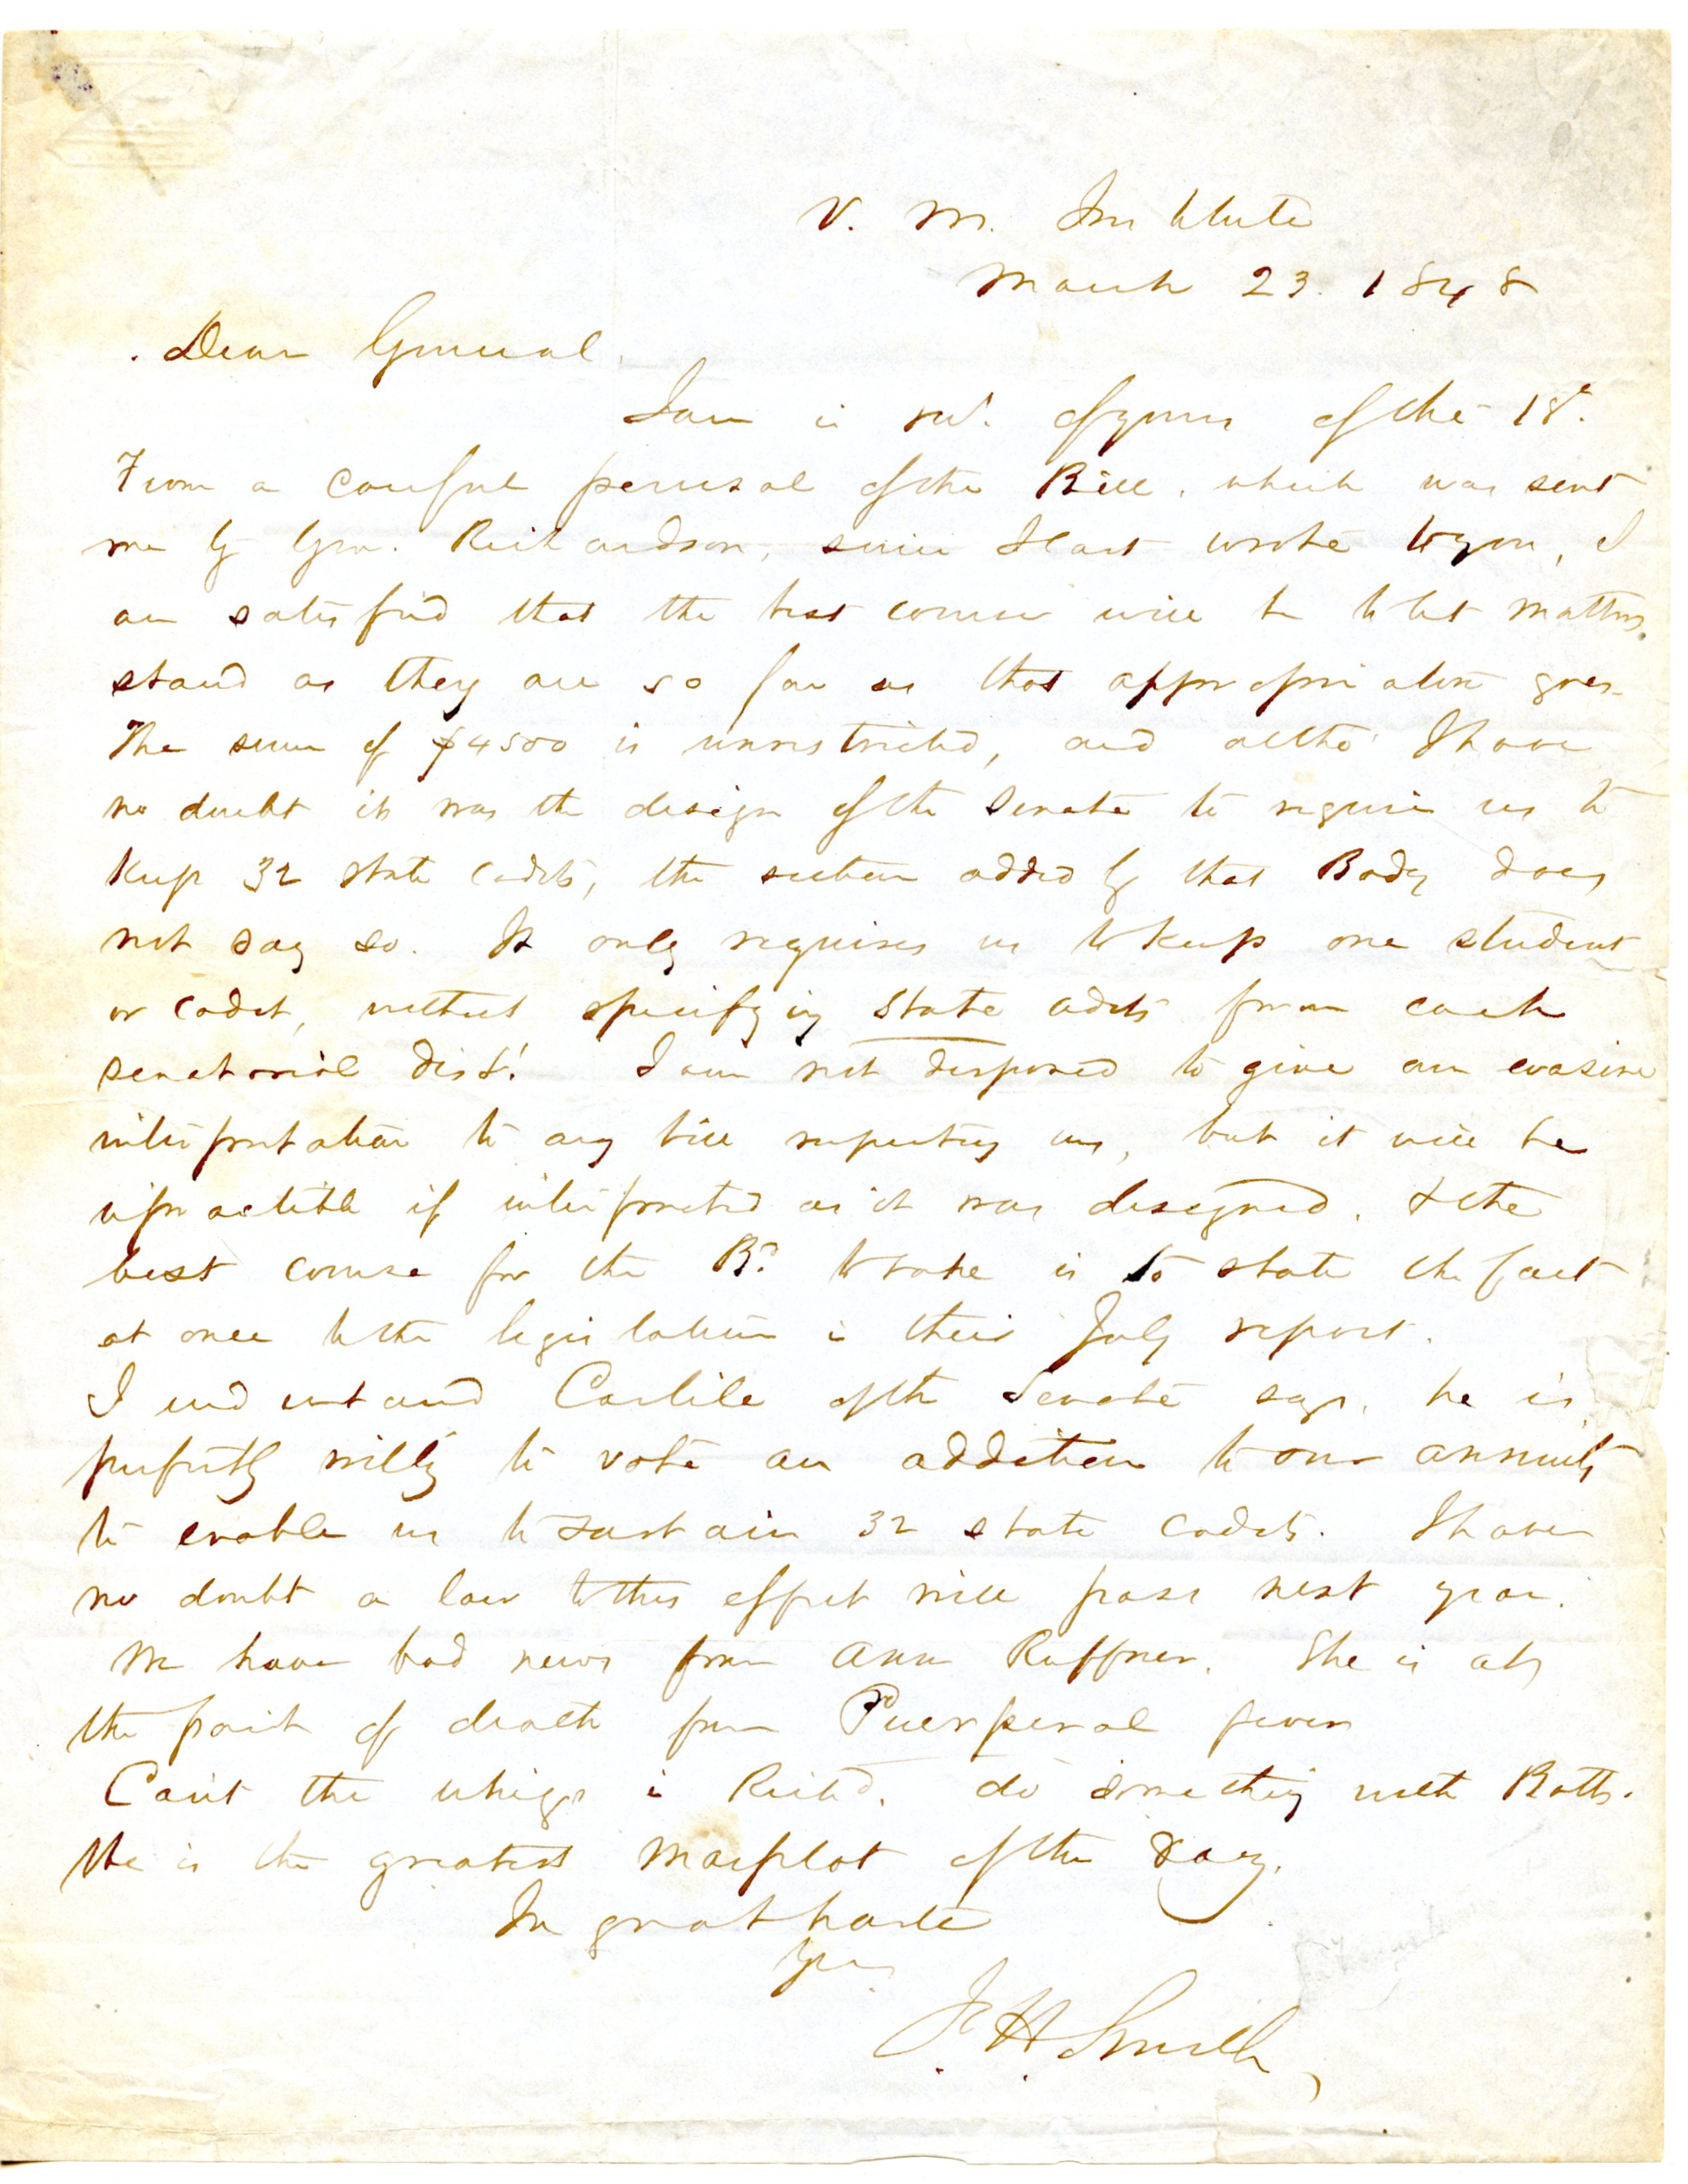 V. M. Institute
March 23. 1848
Dear General.
I am in rect. of yours of the 18th.
From a careful perusal of the Bill, which was sent
me by Gen. Richardson, since I last wrote to you, I
am satisfied that the best course will be to let matters
stand as they are so far as that appropriation goes.
The sum of $4500 is unrestricted, and altho' I have
no doubt it was the design of the Senate to require us to
keep 32 state cadets, the section added by that Body does
not say so. It only requires us to keep one student
or cadet, without specifying state cadets from each
senatorial dist. I am not disposed to give an evasive
interpretation to any bill respecting us, but it will be
impracticable if interpreted as it was designed. & the
best course for the Bd. to take is to state the fact
at once to the legislature in their July report.
I understand Carlile of the Senate says, he is
perfectly willing to vote an addition to our annuity
to enable us to sustain 32 state cadets. I have
no doubt a law to this effect will pass next year.
We have bad news from Ann Ruffner. She is at
the point of death from Puerperal fever
Can't the whigs in Richd. do something with Botts.
He is the greatest Marplot of the day.
In great haste
Yrs
F. H. Smith